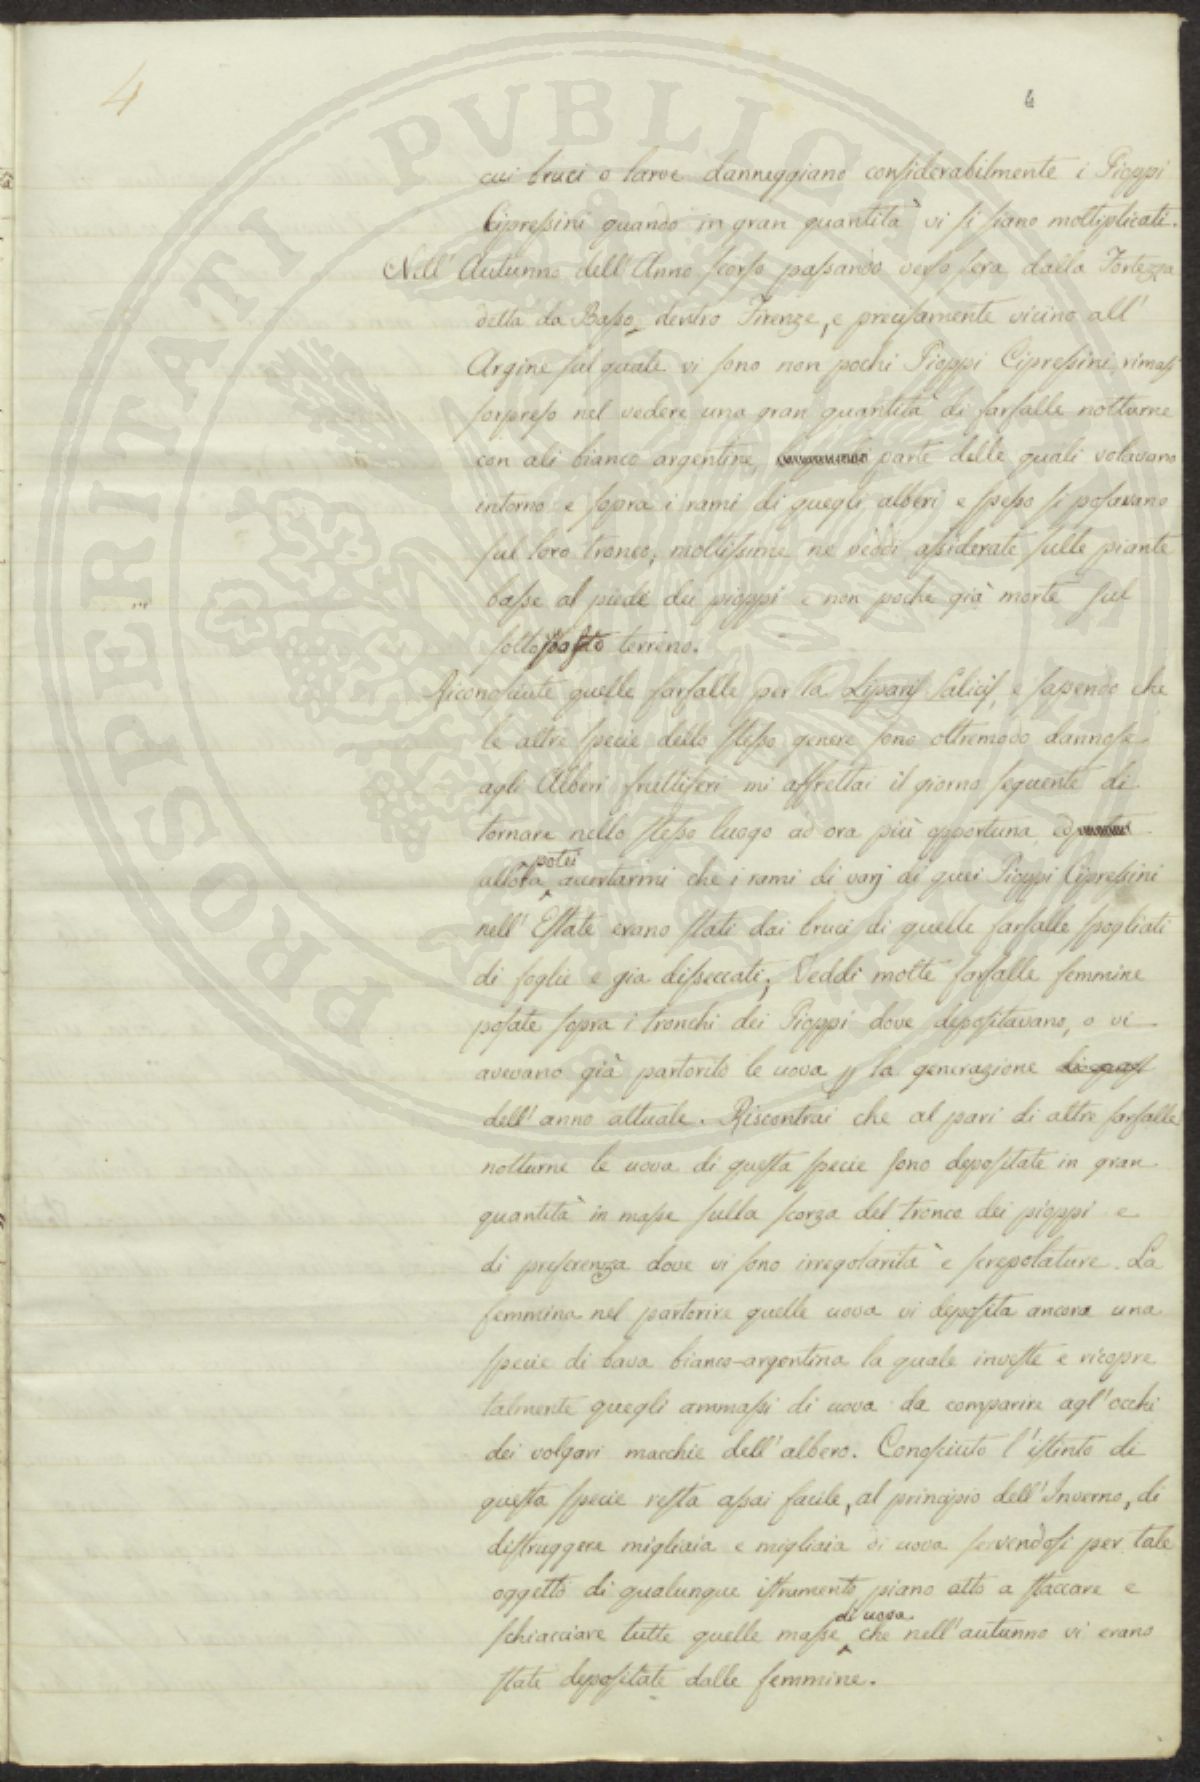 4
4
cui bruci o larve danneggiano considerabilmente i Pioppi
Cipressini quando in gran quantità vi si siano moltiplicati.
Nell' Autunno dell' Anno scorso passando verso sera dalla Fortezza
detta da Basso dentro Firenze, e precisamente vicino all'
Argine sul quale vi sono non pochi Pioppi Cipressini, rimasi
sorpreso nel vedere una gran quantità di farfalle notturne
con ali bianco argentine, parte delle quali volavano
intorno e sopra i rami di quegli alberi e spesso si posavano
sul loro tronco; moltissime ne viddi assiderate sulle piante
basse al piede dei pioppi e non poche già morte sul
sottoposto terreno.
Riconosciute quelle farfalle per la Liparis Salicis, e sapendo che
le altre specie dello stesso genere sono oltremodo dannose
agli Alberi fruttiferi mi affrettai il giorno seguente di
tornare nello stesso luogo ad ora più opportuna, ed
potei
allora accertarmi che i rami di varj di quei Pioppi Cipressini
nell' Estate erano stati dai bruci di quelle farfalle spogliati
di foglie e gia disseccati; Veddi molte farfalle femmine
posate sopra i tronchi dei Pioppi dove depositavano, o vi
avevano già partorito le uova p la generazione
dell' anno attuale. Riscontrai che al pari di altre farfalle
notturne le uova di questa specie sono depositate in gran
quantità in masse sulla scorza del tronco dei pioppi e
di preferenza dove vi sono irregolarità e screpolature. La
femmina nel partorire quelle uova vi deposita ancora una
specie di bava bianco-argentina la quale investe e ricopre
talmente quegli ammassi di uova da comparire agl' occhi
dei volgari macchie dell' albero. Conosciuto l' istinto di
questa specie resta assai facile, al principio dell' Inverno, di
distruggere migliaia e migliaia di uova servendosi per tale
oggetto di qualunque istrumento piano atto a staccare e
di uova
schiacciare tutte quelle masse che nell' autunno vi erano
state depositate dalle femmine.
PROSPERITATI PVBLICAE